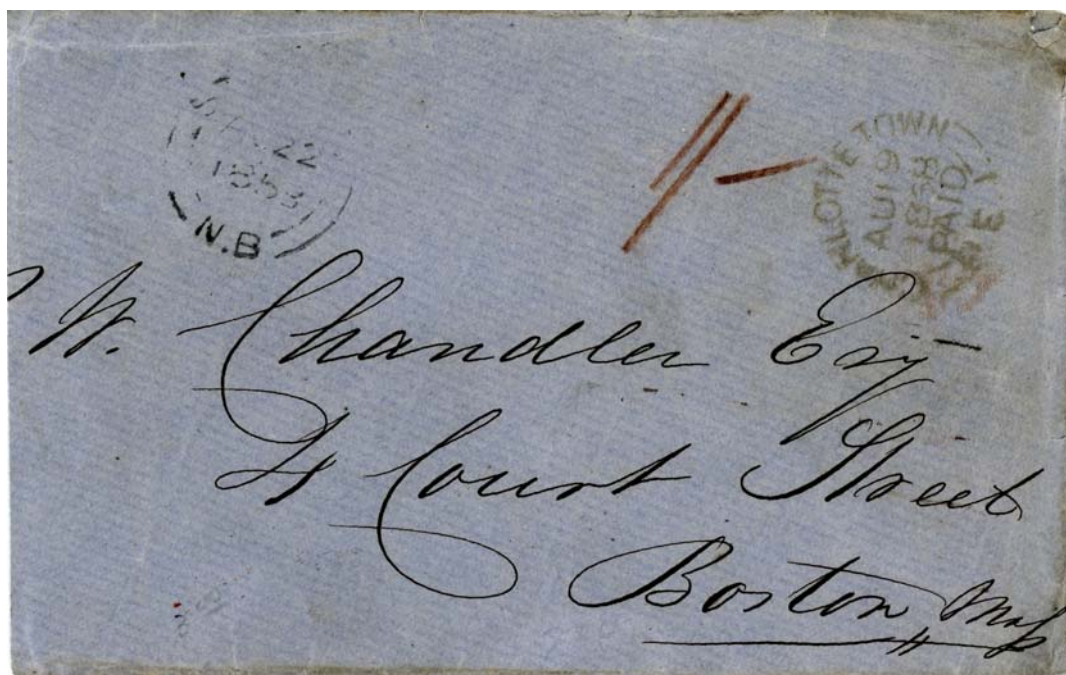 22
1853
N.B
1/-
TOWN
AU 19
1858
PAID
P.E.I.
W. Chandler Esq
4 Court Street
Boston, Mass